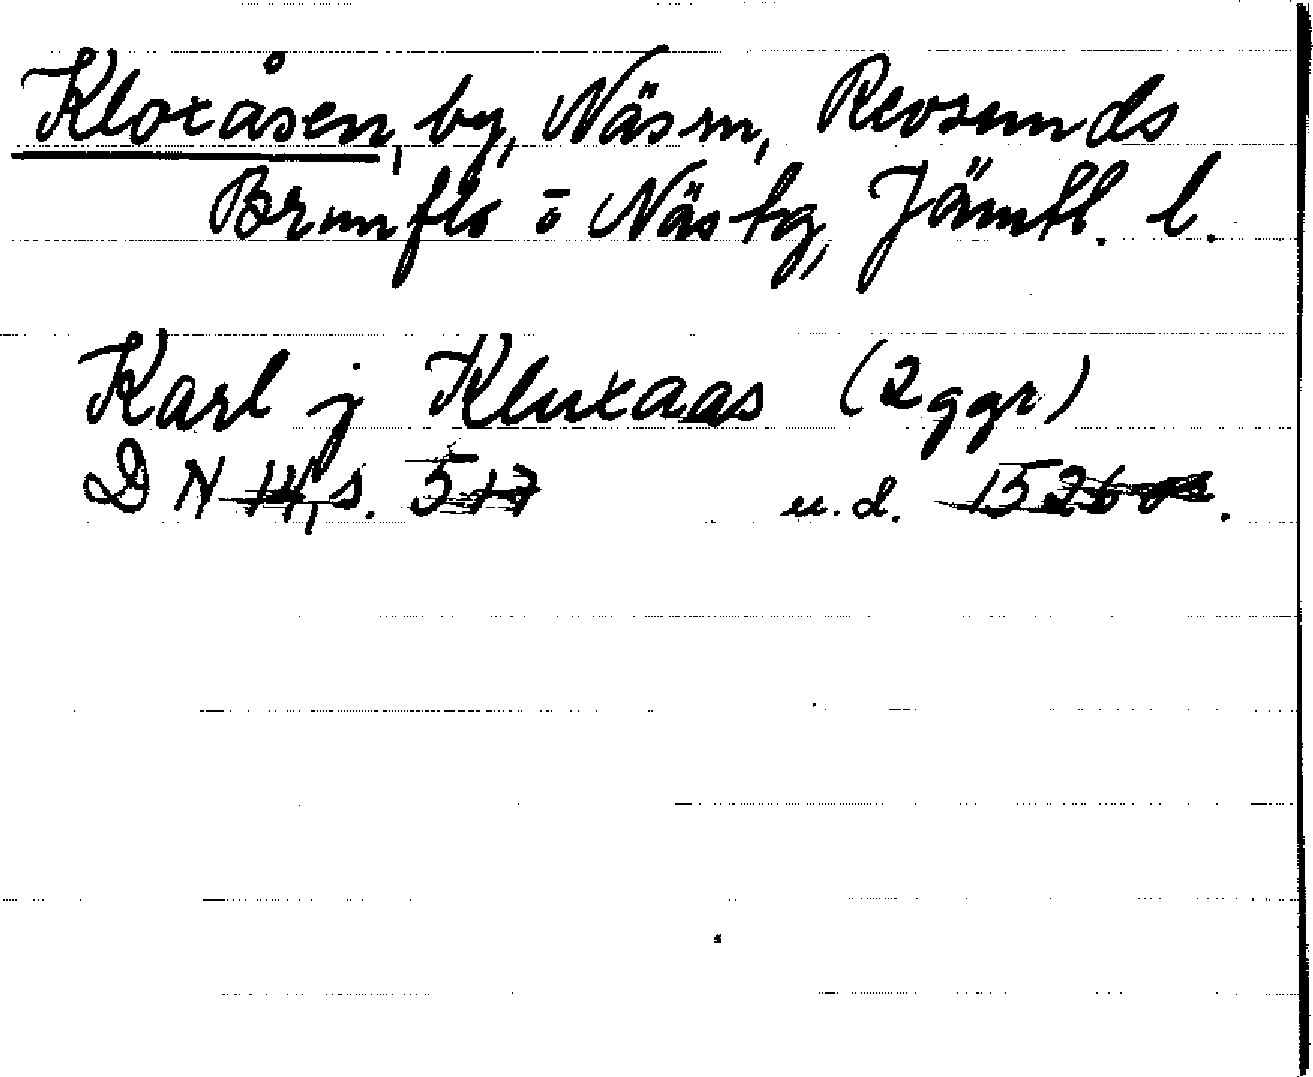 Kloxåsen, by, Näs sn, Revsunds
Brunflo o Näs tg, Jämtl. l.
Karl j Kluxaas (2 ggr)
D N 14, s. 517 u.d. 1526